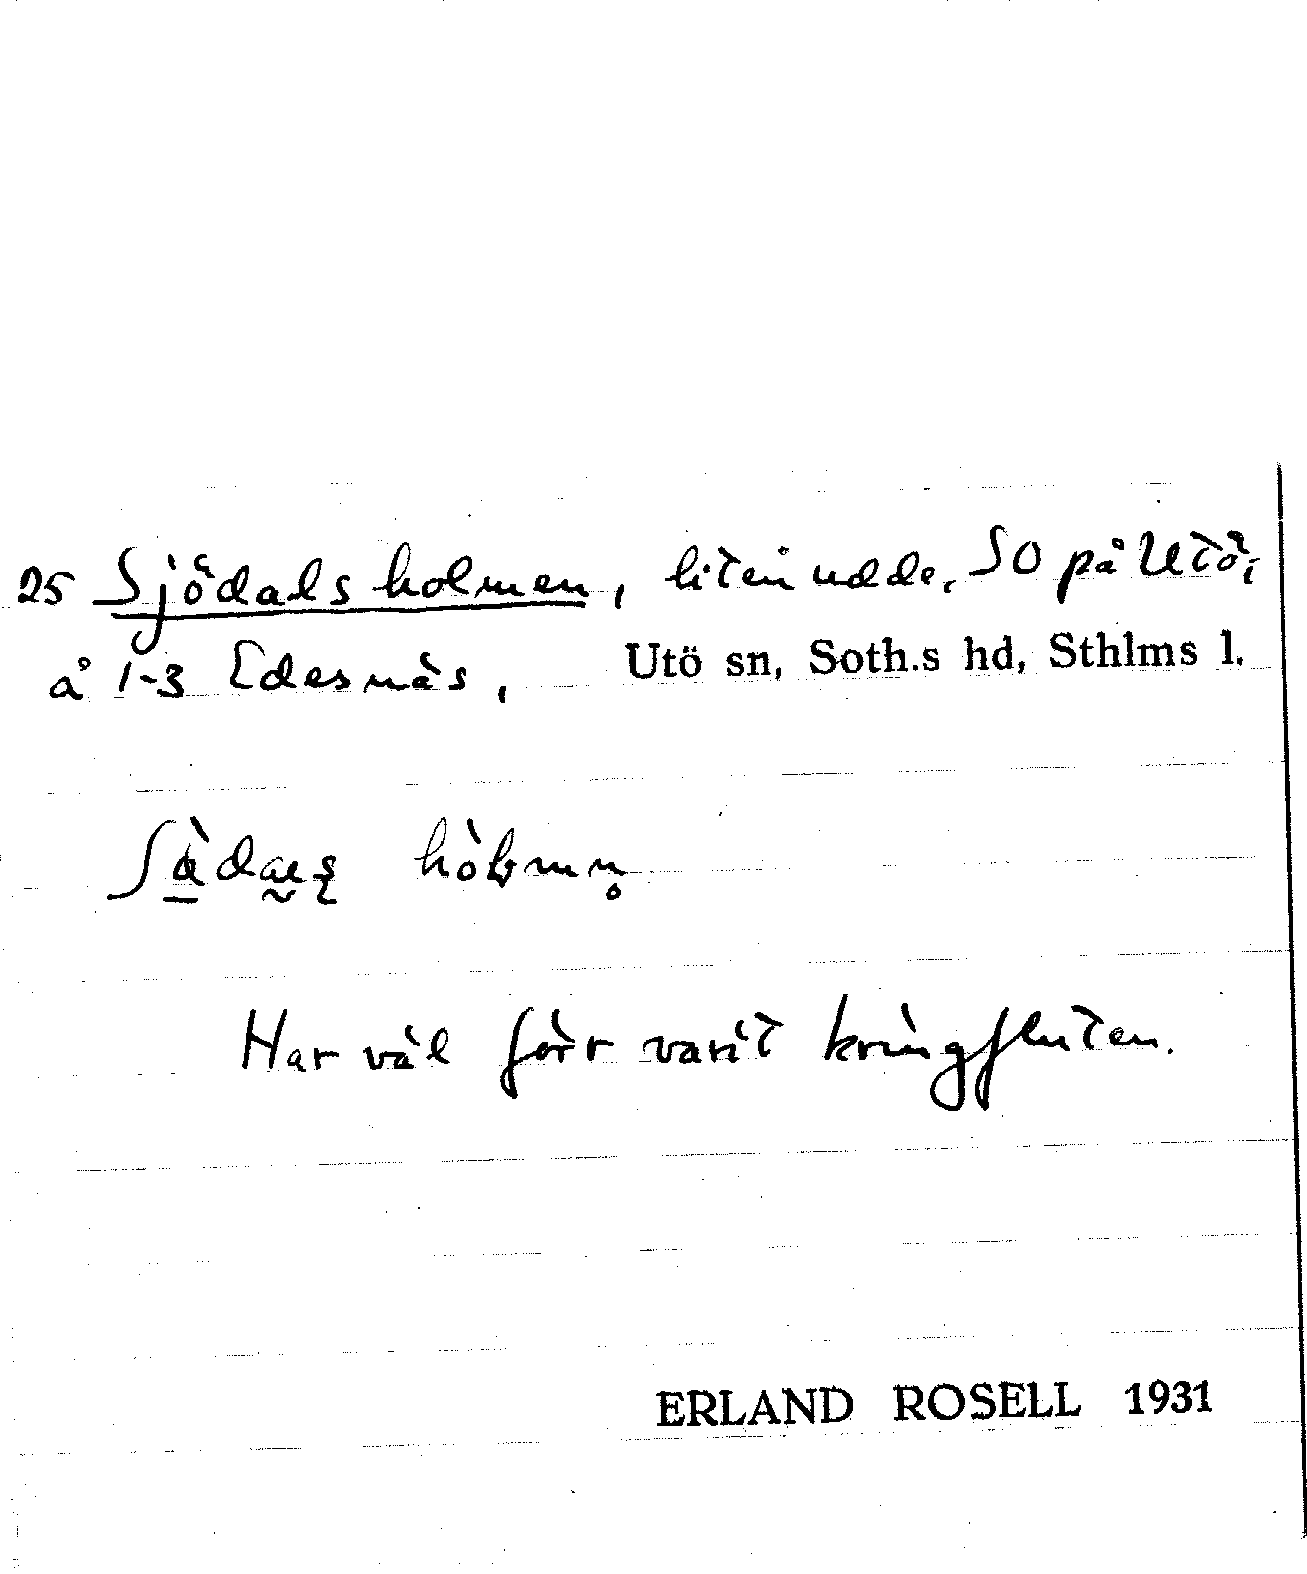 25 Sjödalsholmen, liten udde, SO på Utö,
å 1-3 Edesnäs, Utö sn, Soth.s hd, Sthlms l.
Har väl förr varit kringfluten.
ERLAND ROSELL 1931